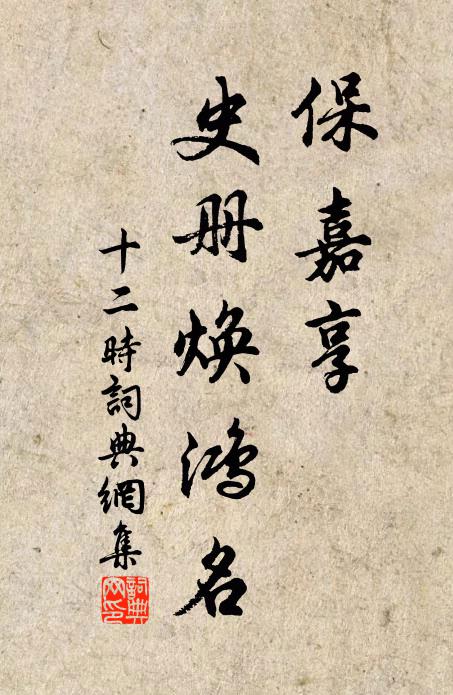 保嘉享
史册焕鸿名
十二時詞典網集
詞典網印